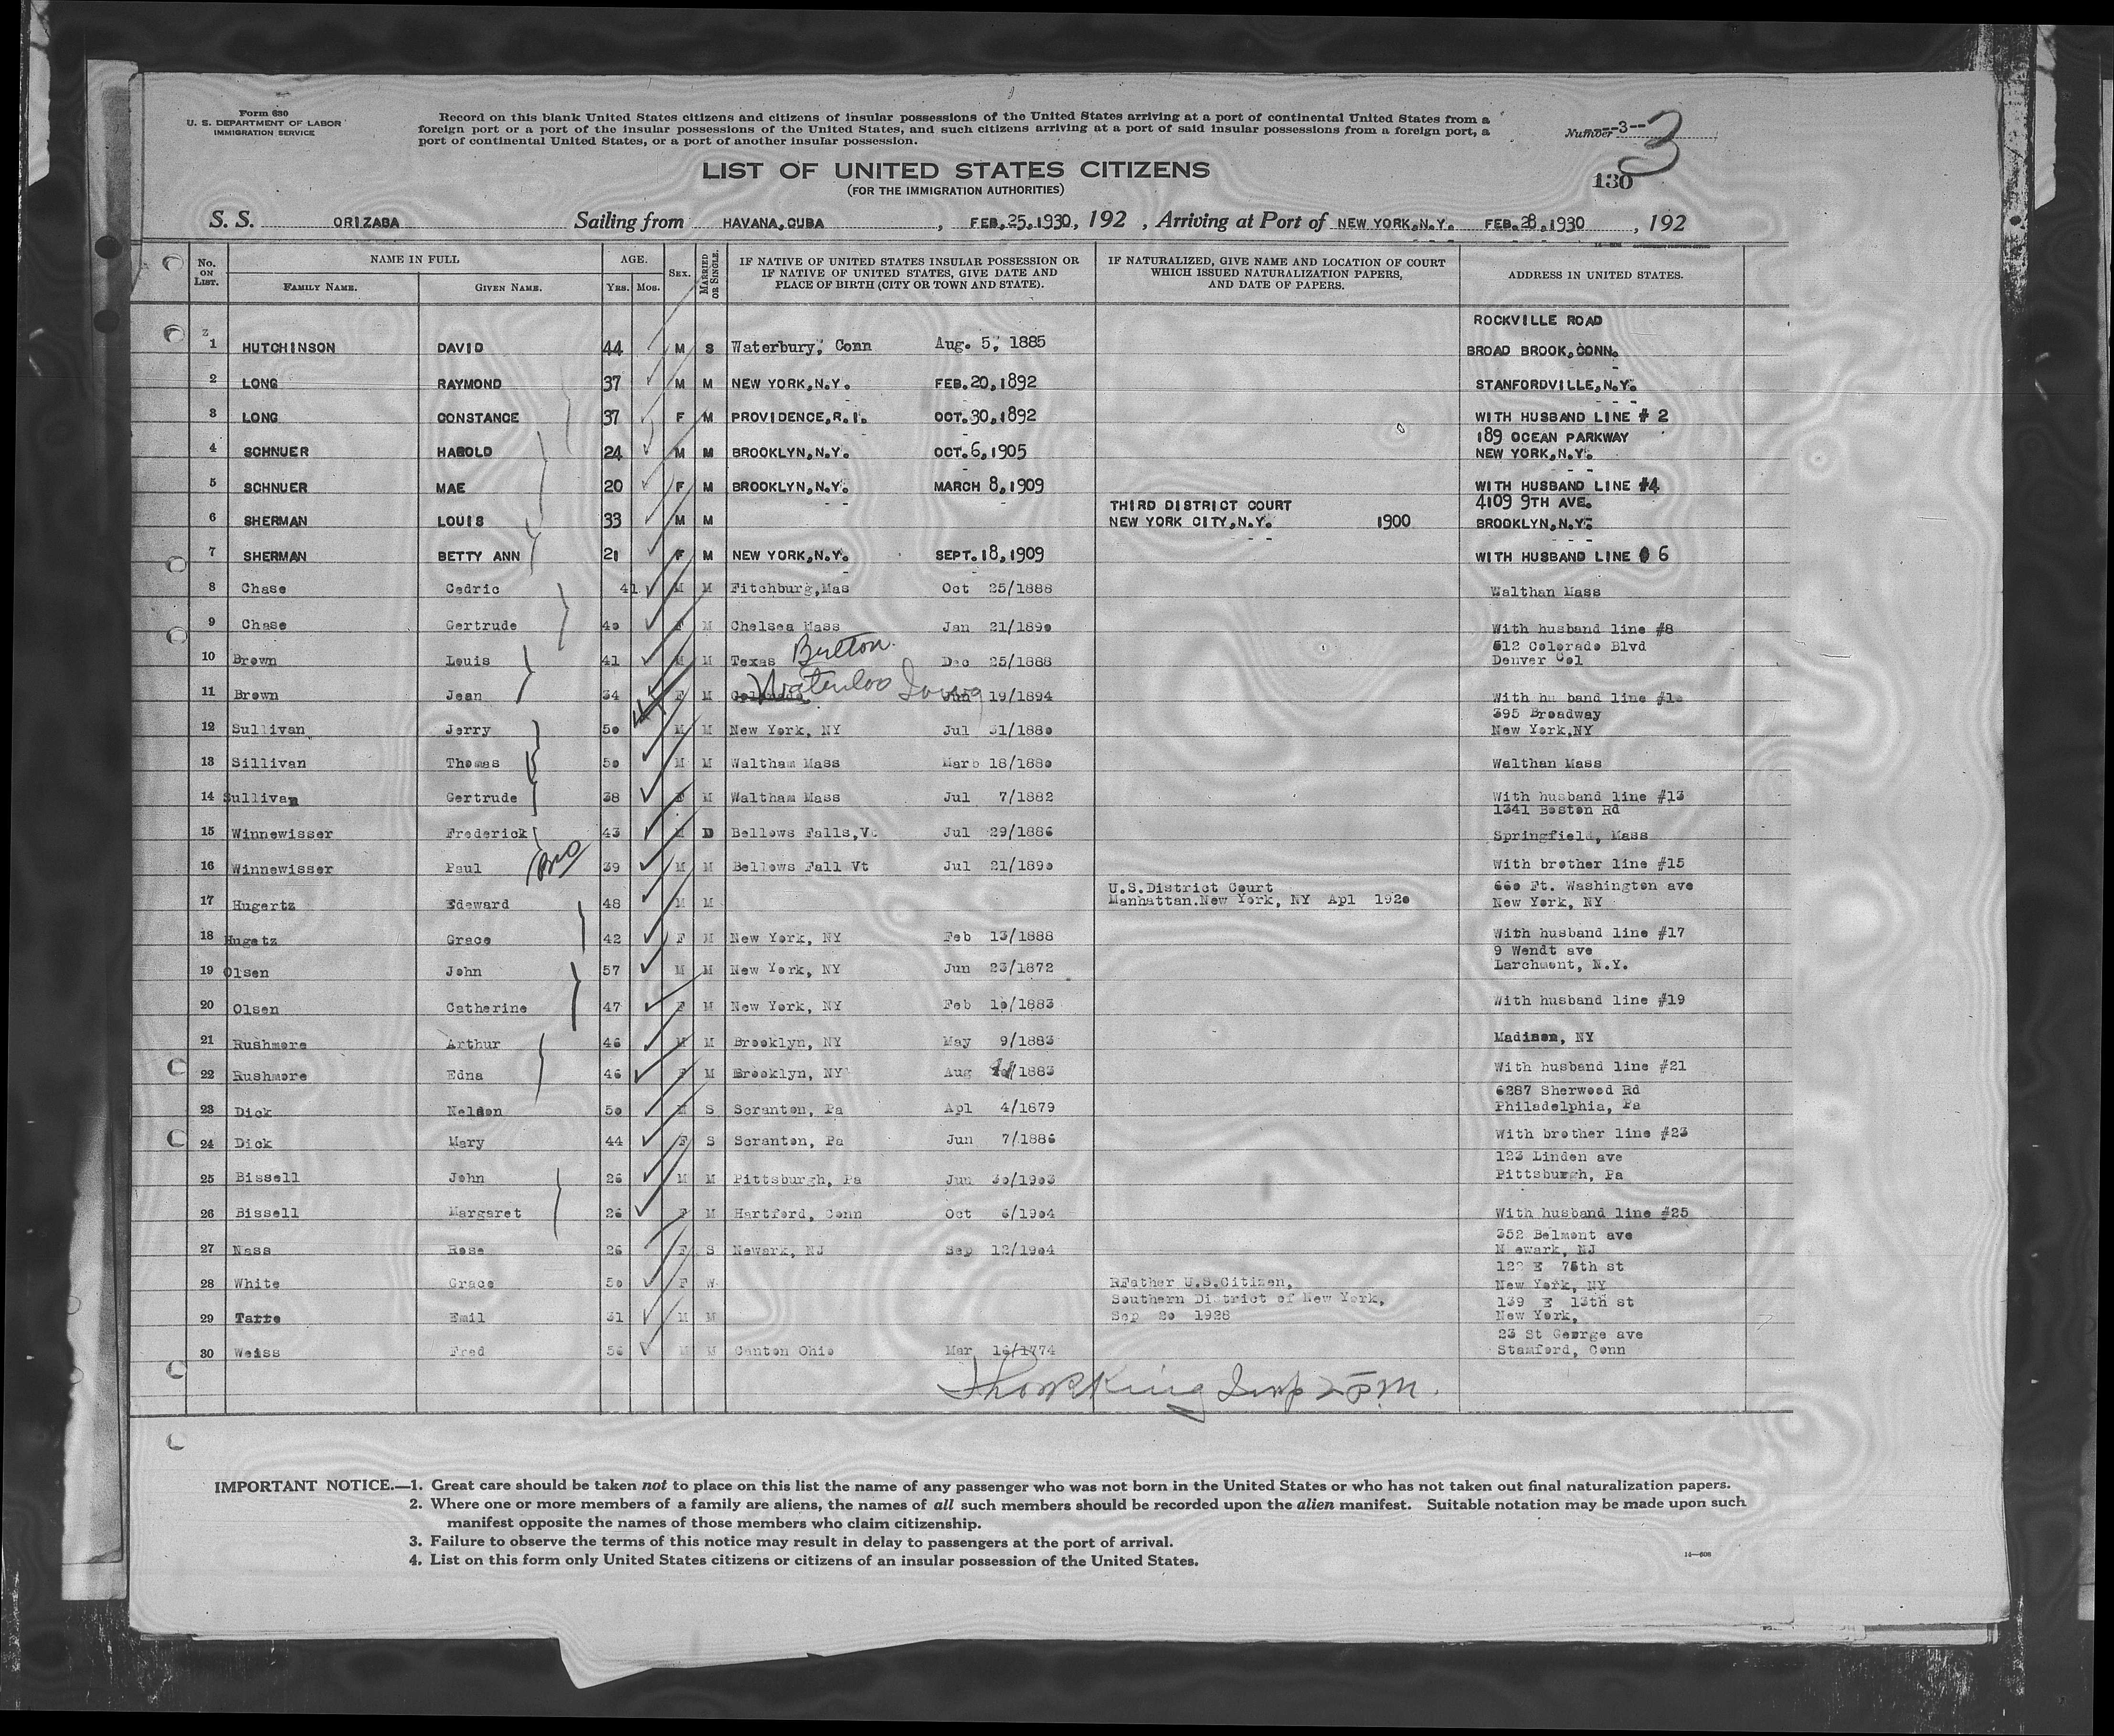 Form 630
U. S. DEPARTMENT OF LABOR
IMMIGRATION SERVICE
Record on this blank United States citizens and citizens of insular possessions of the United States arriving at a port of continental United States from a
foreign port or a port of the insular possessions of the United States, and such citizens arriving at a port of said insular possessions from a foreign port, a
port of continental United States, or a port of another insular possession.
Number --3-- 3
LIST OF UNITED STATES CITIZENS
(FOR THE IMMIGRATION AUTHORITIES)
130
S. S. ORIZABA Sailing from HAVANA,CUBA , FEB.25,1930, 192 , Arriving at Port of NEW YORK,N.Y. FEB.28,1930 , 192
No. ON LIST. NAME IN FULL FAMILY NAME. GIVEN NAME. AGE. YRS. MOS. SEX. MARRIED OR SINGLE. IF NATIVE OF UNITED STATES INSULAR POSSESSION OR IF NATIVE OF UNITED STATES, GIVE DATE AND PLACE OF BIRTH (CITY OR TOWN AND STATE). IF NATURALIZED, GIVE NAME AND LOCATION OF COURT WHICH ISSUED NATURALIZATION PAPERS, AND DATE OF PAPERS. ADDRESS IN UNITED STATES.
ROCKVILLE ROAD
1 HUTCHINSON DAVID 44 M S Waterbury, Conn Aug. 5, 1885 BROAD BROOK,CONN.
2 LONG RAYMOND 37 M M NEW YORK,N.Y. FEB.20,1892 STANFORDVILLE,N.Y.
3 LONG CONSTANCE 37 F M PROVIDENCE,R.I. OCT.30,1892 WITH HUSBAND LINE # 2
189 OCEAN PARKWAY
4 SCHNUER HAROLD 24 M M BROOKLYN,N.Y. OCT.6,1905 NEW YORK,N.Y.
5 SCHNUER MAE 20 F M BROOKLYN,N.Y. MARCH 8,1909 WITH HUSBAND LINE #4
THIRD DISTRICT COURT 4109 9TH AVE.
6 SHERMAN LOUIS 33 M M NEW YORK CITY,N.Y. 1900 BROOKLYN,N.Y.
7 SHERMAN BETTY ANN 21 F M NEW YORK,N.Y. SEPT.18,1909 WITH HUSBAND LINE 6
8 Chase Cedric 41 M M Fitchburg,Mas Oct 25/1888 Walthan Mass
9 Chase Gertrude 40 F M Chelsea Mass Jan 21/1890 With husband line #8
512 Colorado Blvd
10 Brown Louis 41 M M Texas Belton. Dec 25/1888 Denver Col
11 Brown Jean 34 F M Waterloo Iowa Jun 19/1894 With hu band line #10
395 Broadway
12 Sullivan Jerry 50 M M New York, NY Jul 31/1880 New York,NY
13 Sillivan Thomas 50 M M Waltham Mass Marb 18/1880 Walthan Mass
14 Sullivan Gertrude 38 F M Waltham Mass Jul 7/1882 With husband line #13
1341 Boston Rd
15 Winnewisser Frederick 43 M D Bellows Falls,Vt Jul 29/1886 Springfield, Mass
16 Winnewisser Paul Bro 39 M M Bellows Fall Vt Jul 21/1890 With brother line #15
U.S.District Court 660 Ft. Washington ave
17 Hugertz Edeward 48 M M Manhattan.New York, NY Apl 1920 New York, NY
18 Hugetz Grace 42 F M New York, NY Feb 13/1888 With husband line #17
9 Wendt ave
19 Olsen John 57 M M New York, NY Jun 23/1872 Larchmont, N.Y.
20 Olsen Catherine 47 F M New York, NY Feb 10/1883 With husband line #19
21 Rushmore Arthur 46 M M Brooklyn, NY May 9/1883 Madison, NY
22 Rushmore Edna 46 F M Brooklyn, NY Aug /1883 With husband line #21
6287 Sherwood Rd
23 Dick Neldon 50 M S Scranton, Pa Apl 4/1879 Philadelphia, Pa
24 Dick Mary 44 F S Scranton, Pa Jun 7/1886 With brother line #23
123 Linden ave
25 Bissell John 26 M M Pittsburgh, Pa Jun 30/1903 Pittsburgh, Pa
26 Bissell Margaret 26 F M Hartford, Conn Oct 6/1904 With husband line #25
352 Belmont ave
27 Nass Rose 26 F S Newark, NJ Sep 12/1904 N ewark, NJ
122 E 75th st
28 White Grace 50 F W RFather U.S.Citizen, New York, NY
Southern District of New York, 139 E 13th st
29 Tarte Emil 31 M M Sep 20 1928 New York,
23 St George ave
30 Weiss Fred 56 M M Canton Ohio Mar 16/1774 Stamford, Conn
IMPORTANT NOTICE.—1. Great care should be taken not to place on this list the name of any passenger who was not born in the United States or who has not taken out final naturalization papers.
2. Where one or more members of a family are aliens, the names of all such members should be recorded upon the alien manifest. Suitable notation may be made upon such
manifest opposite the names of those members who claim citizenship.
3. Failure to observe the terms of this notice may result in delay to passengers at the port of arrival.
4. List on this form only United States citizens or citizens of an insular possession of the United States.
14—608